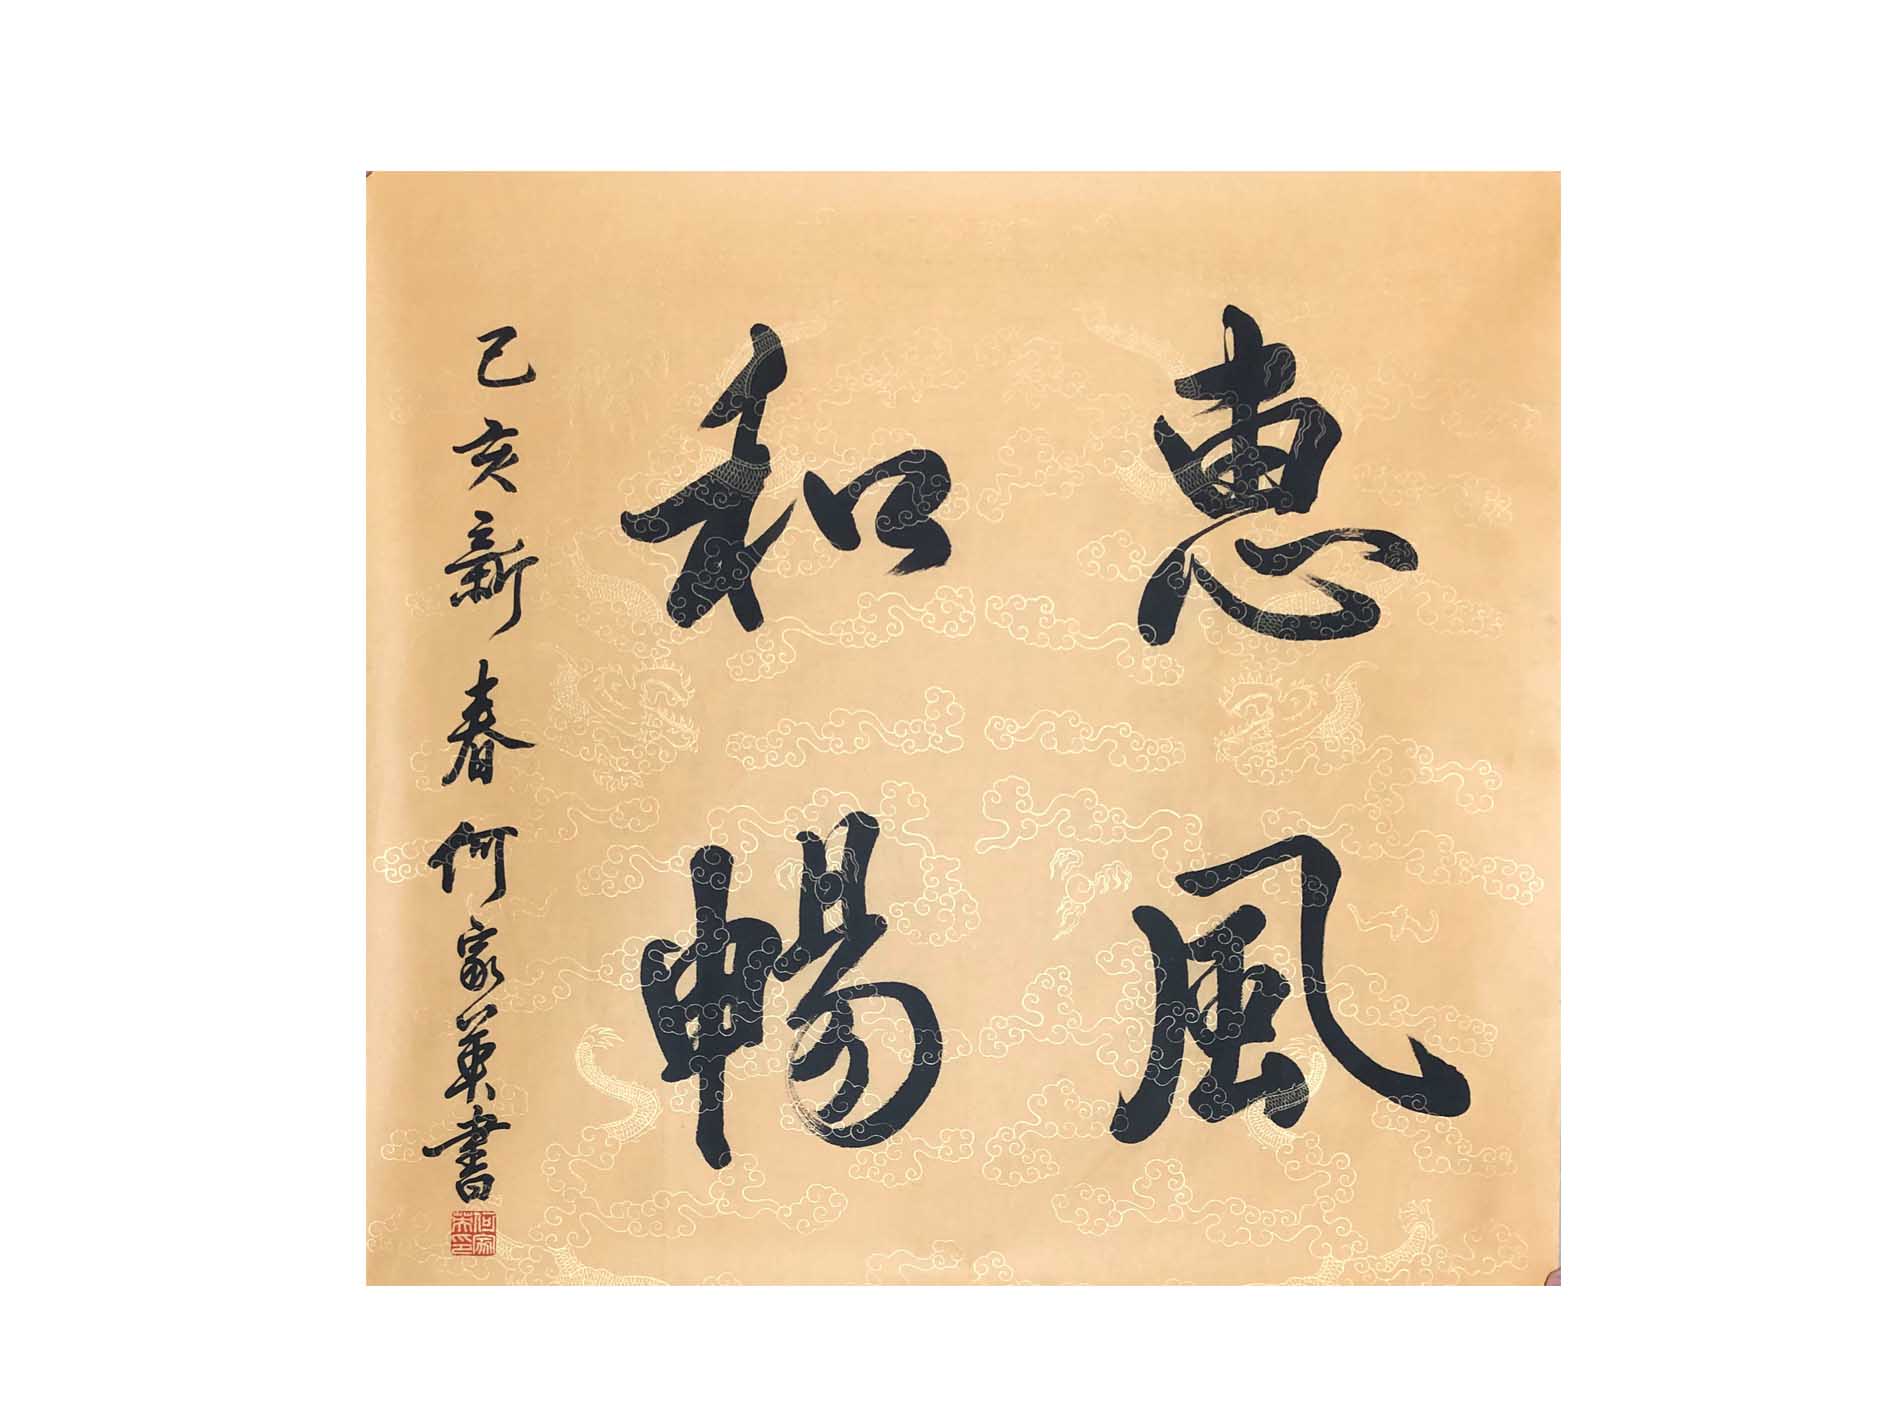 惠風
和暢
己亥新春何家英書
何家英印